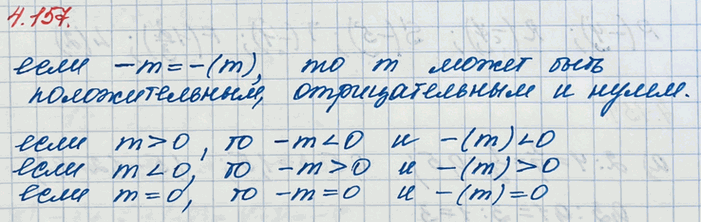 4.157.
если -m = -(m), то m может быть
положительным, отрицательным и нулем.
если m > 0, то -m < 0 и -(m) < 0
если m < 0, то -m > 0 и -(m) > 0
если m = 0, то -m = 0 и -(m) = 0